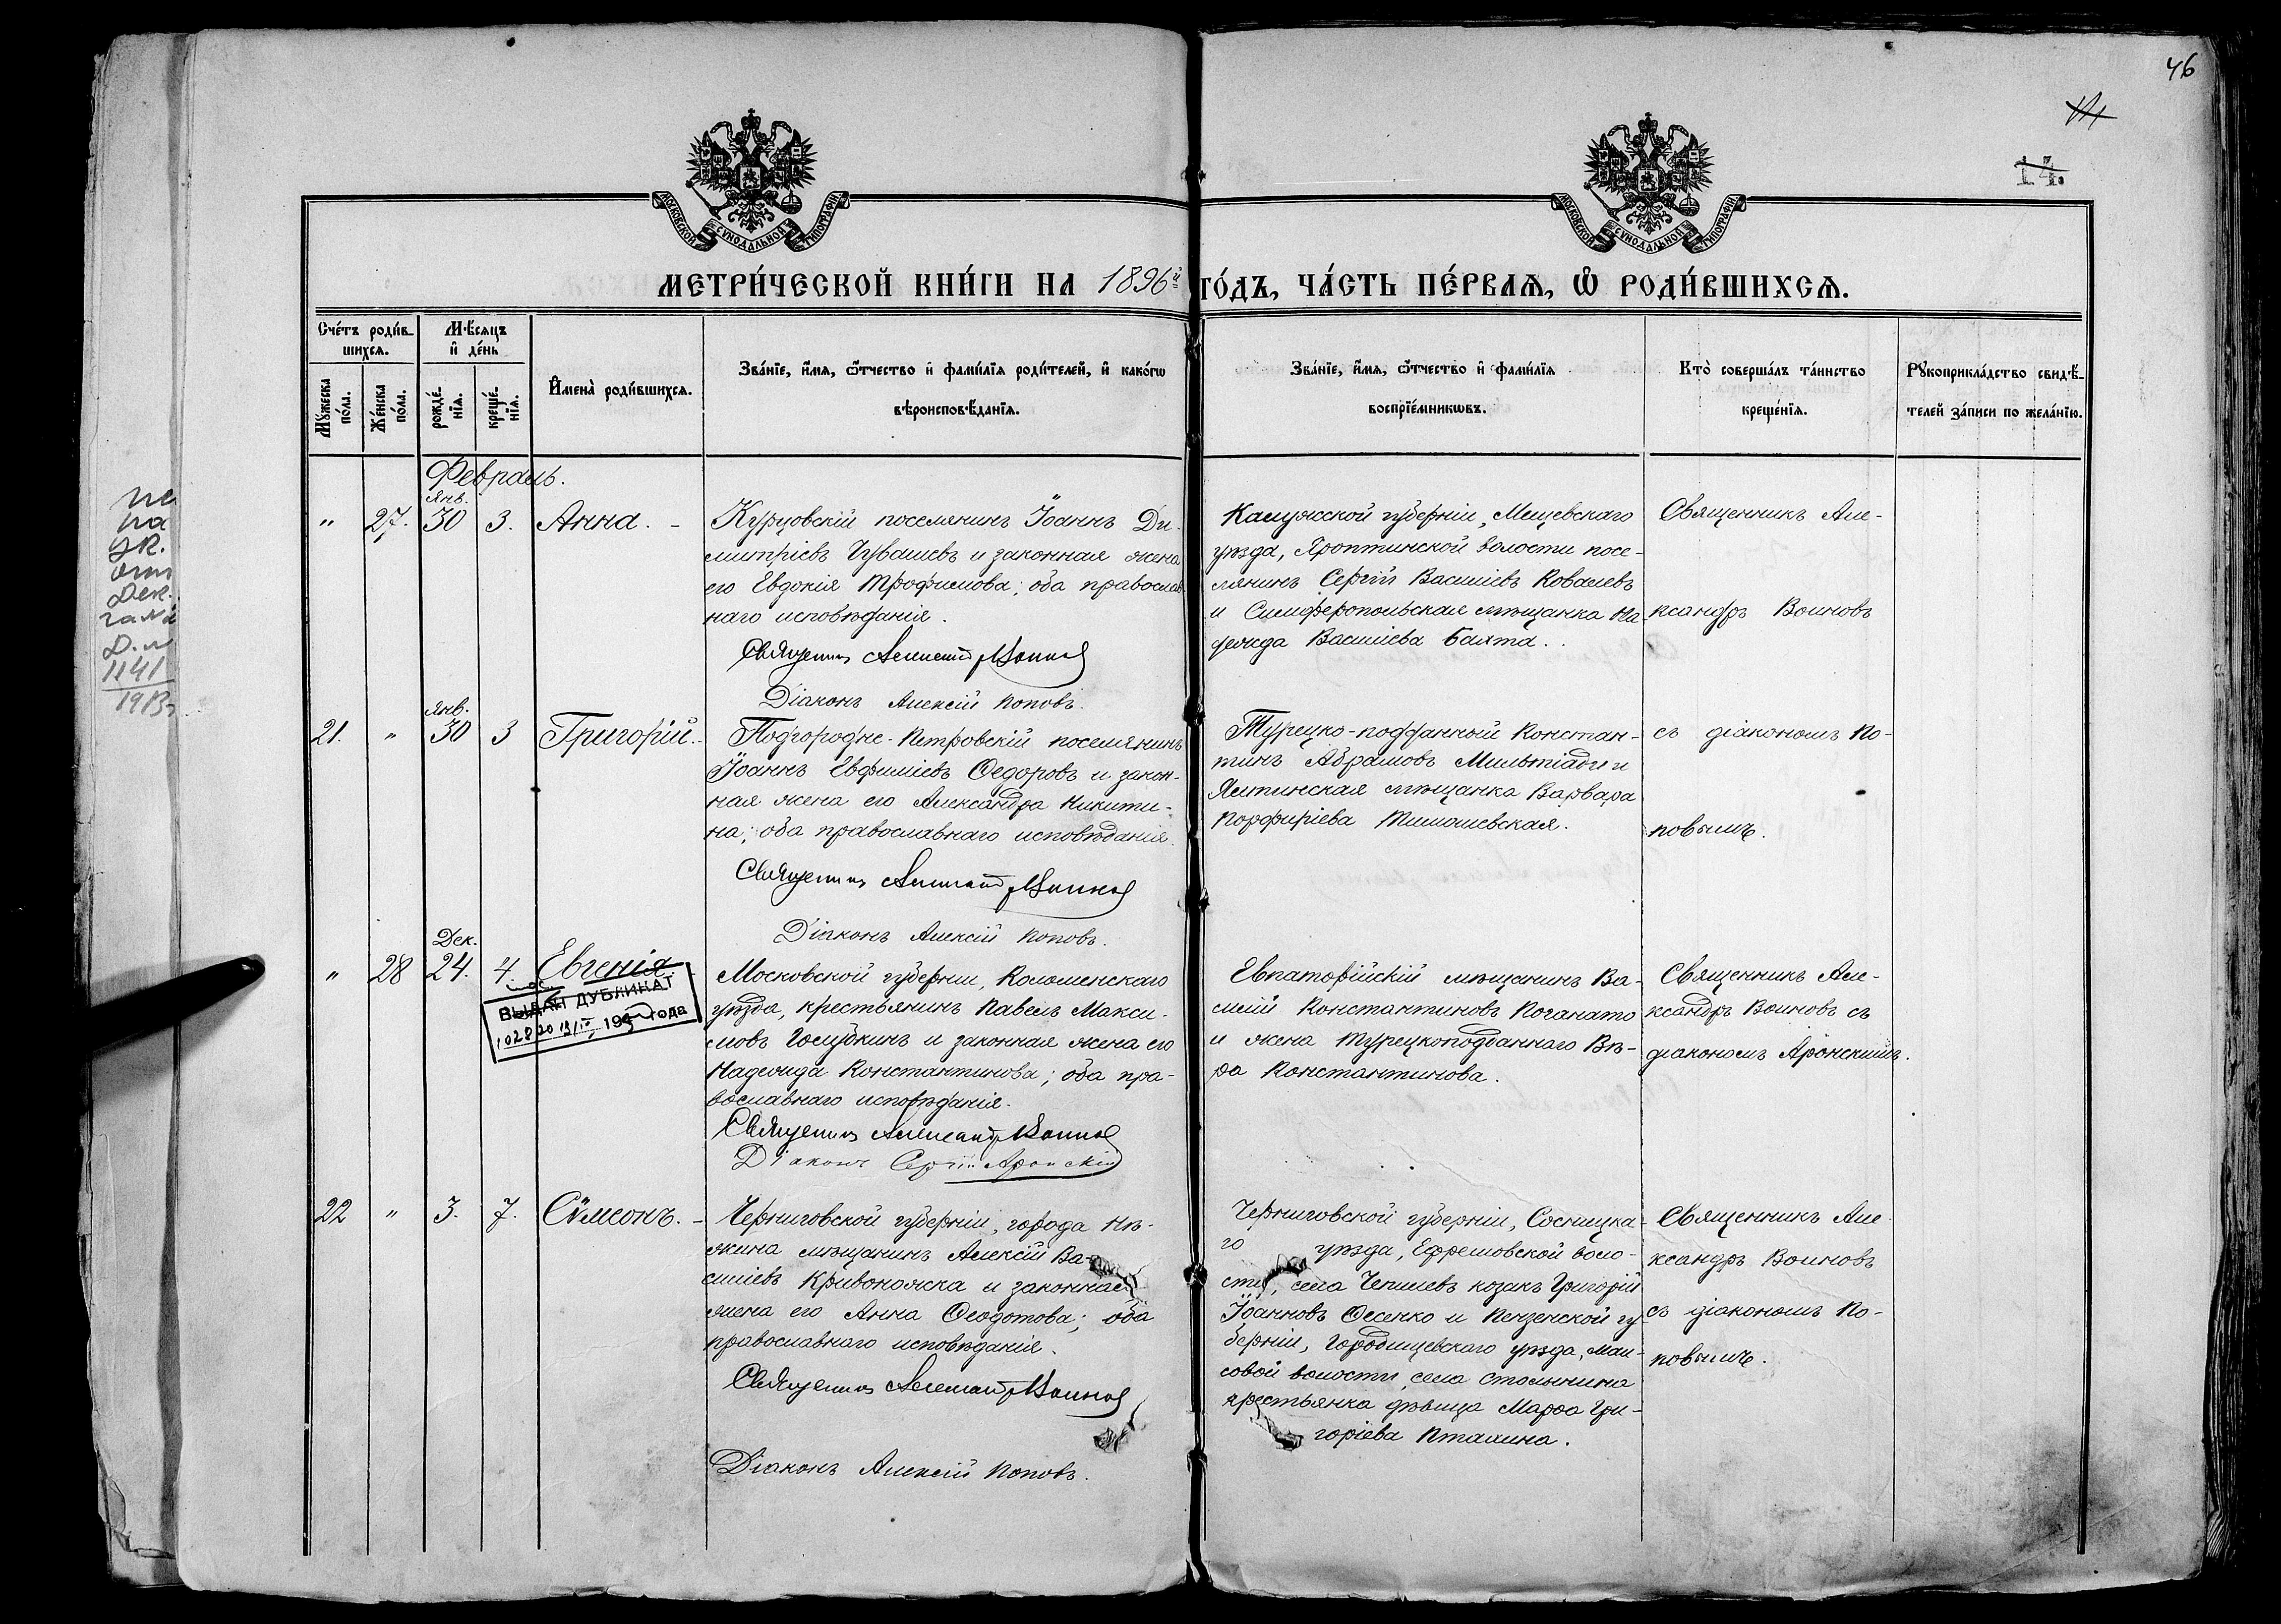 46
14.
МОСКОВСКОЙ СУНОДАЛЬНОЙ ТИПОГРАФІИ
МОСКОВСКОЙ СУНОДАЛЬНОЙ ТИПОГРАФІИ
МЕТРИ́ЧЕСКОЙ КНИ́ГИ НА 1896й ГО́ДЪ, ЧА́СТЬ ПЕ́РВАѦ, Ѡ҆ РОДИ́ВШИХСѦ.
Сче́тъ роди́в-
шихсѧ.
Мꙋ́жеска по́ла.
Же́нска по́ла.
Мѣ́сѧцъ
и҆ де́нь
рожде́-
нїѧ.
креще́-
нїѧ.
И҆мена̀ роди́вшихсѧ.
Зва́нїе, и҆́мѧ, ѻ҆́тчество и҆ фами́лїѧ роди́телей, и҆ како́гѡ
вѣроисповѣ́данїѧ.
Зва́нїе, и҆́мѧ, ѻ҆́тчество и҆ фами́лїѧ
воспрїе́мникѡвъ.
Кто̀ соверша́лъ та́инство
креще́нїѧ.
Рꙋкоприкла́дство свидѣ́-
телей за́писи по жела́нїю.
Февраль.
Янв.
" 27. 30 3. Анна. -
Курцовскій поселянинъ Іоаннъ Ди-
митріевъ Чувашевъ и законная жена
его Евдокія Трофимова; оба православ
наго исповѣданія.
Священникъ Александръ Воиновъ
Діаконъ Алексій Поповъ.
Калужской губерніи, Мещевскаго
уѣзда, Яроптинской волости посе-
лянинъ Сергій Василіевъ Ковалевъ
и Симферопольская мѣщанка На-
дежда Василіева Балта.
Священникъ Але-
ксандръ Воиновъ
Янв.
21. " 30 3 Григорій. -
Подгородне-Петровскій поселянинъ
Іоаннъ Евфиміевъ Ѳедоровъ и закон-
ная жена его Александра Никити-
на; оба православнаго исповѣданія.
Священникъ Александръ Воиновъ
Діаконъ Алексій Поповъ.
Турецко-подданный Констан-
тинъ Абрамовъ Мильтіади и
Ялтинская мѣщанка Варвара
Порфиріева Тимошевская.
съ діакономъ По-
повымъ.
Дек.
" 28 24. 4. Евгенія
ВЫДАН ДУБЛИКАТ
195 года
Московской губерніи, Коломенскаго
уѣзда, крестьянинъ Павелъ Макси-
мовъ Голубкинъ и законная жена его
Надежда Константинова; оба пра-
вославнаго исповѣданія.
Священникъ Александръ Воиновъ
Діаконъ Сергій Аронскій
Евпаторійскій мѣщанинъ Ва-
силій Константиновъ Поганато
и жена Турецкоподданнаго Вѣ-
ра Константинова.
Священникъ Але-
ксандръ Воиновъ съ
діакономъ Аронскимъ.
22 " 3. 7. Сѵмеонъ. -
Черниговской губерніи, города Нѣ-
жина мѣщанинъ Алексій Ва-
силіевъ Кривоножка и законная
жена его Анна Ѳеодотова; оба
православнаго исповѣданія.
Священникъ Александръ Воиновъ
Діаконъ Алексій Поповъ.
Черниговской губерніи, Сосницка-
го уѣзда, Ефремовской воло-
сти, села Чепелевъ козакъ Григорій
Іоанновъ Ѳесенко и Пензенской гу
берніи, Городищевскаго уѣзда,
совой волости, села Столыпина
крестьянка дѣвица Марѳа Гри-
горіева Пталина.
Священникъ Але-
ксандръ Воиновъ
съ діакономъ По-
повымъ.
1141